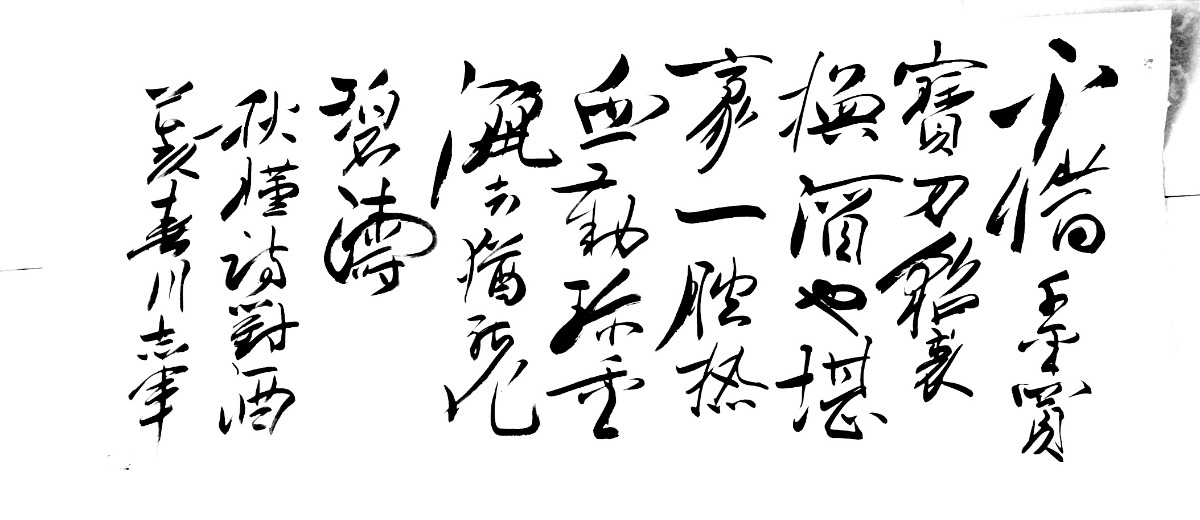 不惜千金買
寶刀貂裘
換酒也堪
豪一腔热
血勤珍重
灑去猶能化
碧濤
秋瑾詩對酒
春川志軍